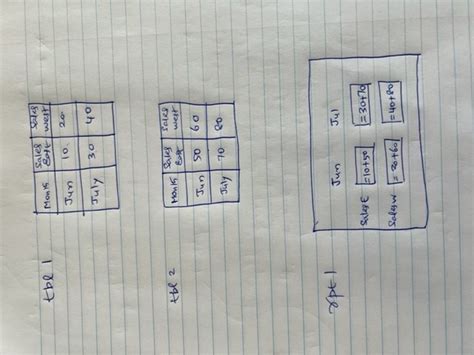 tbl 1
Month Sales East Sales West
Jun 10 20
July 30 40
tbl 2
Month Sales East Sales West
Jun 50 60
July 70 80
rpt 1
Jun Jul
Sales E =10+50 =30+70
Sales W =20+60 =40+80